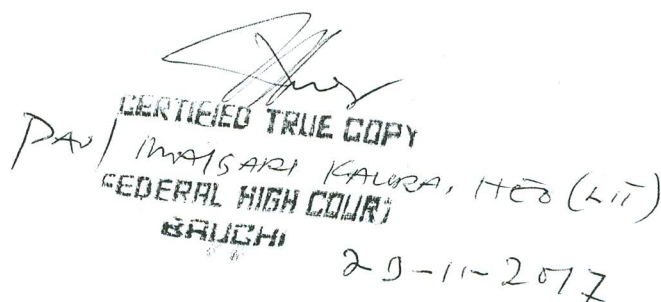 CERTIFIED TRUE COPY
Paul Maisari Kaura, HEO (LIT)
FEDERAL HIGH COURT
BAUCHI
-11-2017